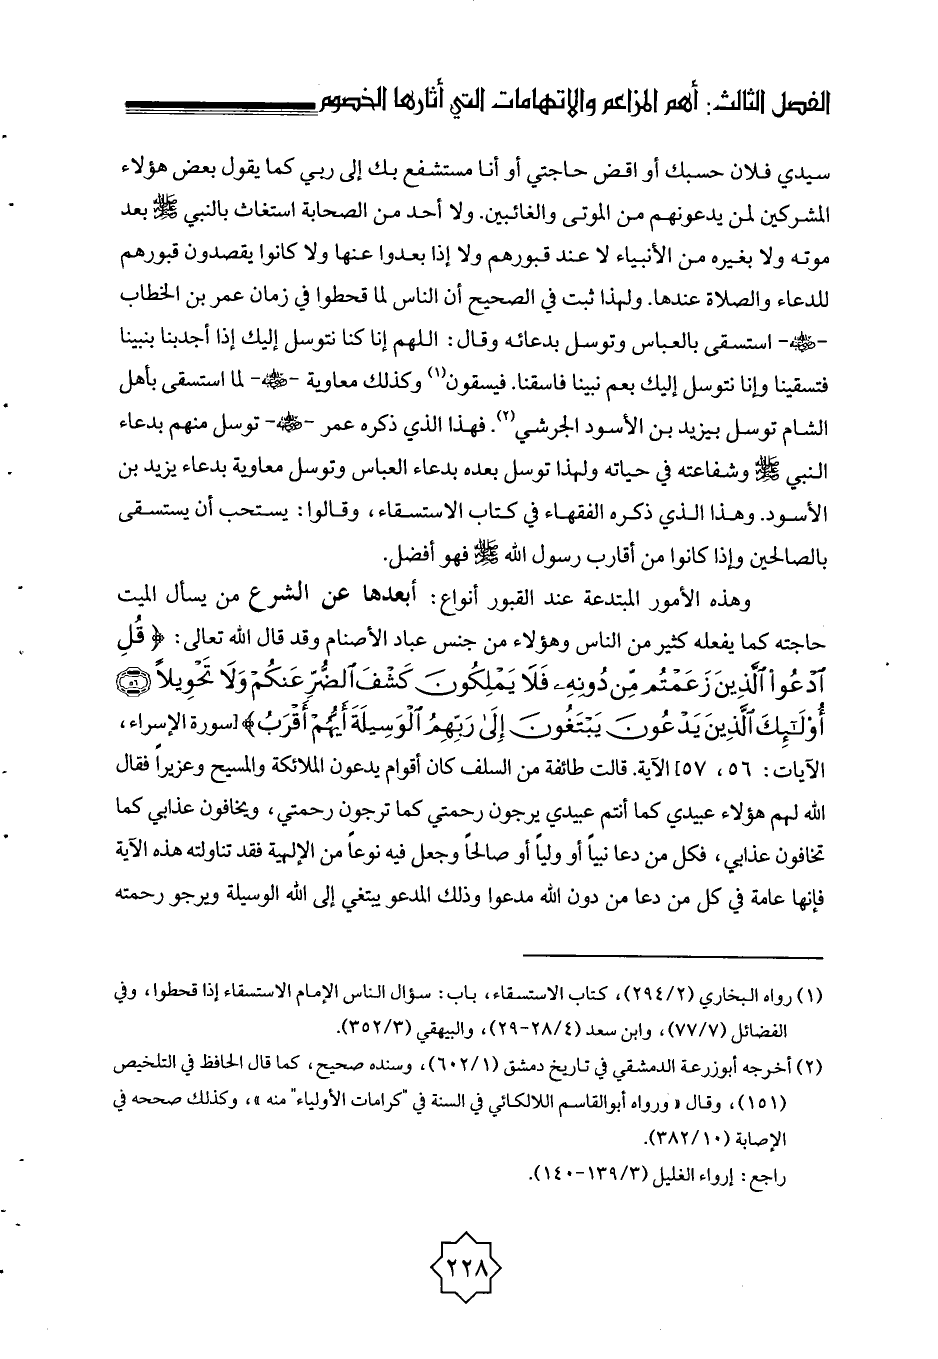 الفصل الثالث: أهم المزاعم والاتهامات التي أثارها الخصوم
سيدي فلان حسبك أو اقض حاجتي أو أنا مستشفع بك إلى ربي كما يقول بعض هؤلاء
المشركين لمن يدعونهم من الموتى والغائبين. ولا أحد من الصحابة استغاث بالنبي ﷺ بعد
موته ولا بغيره من الأنبياء لا عند قبورهم ولا إذا بعدوا عنها ولا كانوا يقصدون قبورهم
للدعاء والصلاة عندها. ولهذا ثبت في الصحيح أن الناس لما قحطوا في زمان عمر بن الخطاب
-رضي الله عنه- استسقى بالعباس وتوسل بدعائه وقال: اللهم إنا كنا نتوسل إليك إذا أجدبنا بنبينا
فتسقينا وإنا نتوسل إليك بعم نبينا فاسقنا. فيسقون(١) وكذلك معاوية -رضي الله عنه- لما استسقى بأهل
الشام توسل بيزيد بن الأسود الجرشي(٢). فهذا الذي ذكره عمر -رضي الله عنه- توسل منهم بدعاء
النبي ﷺ وشفاعته في حياته ولهذا توسل بعده بدعاء العباس وتوسل معاوية بدعاء يزيد بن
الأسود. وهذا الذي ذكره الفقهاء في كتاب الاستسقاء، وقالوا: يستحب أن يستسقى
بالصالحين وإذا كانوا من أقارب رسول الله ﷺ فهو أفضل.
وهذه الأمور المبتدعة عند القبور أنواع: أبعدها عن الشرع من يسأل الميت
حاجته كما يفعله كثير من الناس وهؤلاء من جنس عباد الأصنام وقد قال الله تعالى: ﴿ قُلِ
ٱدْعُوا۟ ٱلَّذِينَ زَعَمْتُم مِّن دُونِهِۦ فَلَا يَمْلِكُونَ كَشْفَ ٱلضُّرِّ عَنكُمْ وَلَا تَحْوِيلاً ۝٥٦
أُو۟لَٰٓئِكَ ٱلَّذِينَ يَدْعُونَ يَبْتَغُونَ إِلَىٰ رَبِّهِمُ ٱلْوَسِيلَةَ أَيُّهُمْ أَقْرَبُ﴾ [سورة الإسراء،
الآيات: ٥٦، ٥٧] الآية. قالت طائفة من السلف كان أقوام يدعون الملائكة والمسيح وعزيراً فقال
الله لهم هؤلاء عبيدي كما أنتم عبيدي يرجون رحمتي كما ترجون رحمتي، ويخافون عذابي كما
تخافون عذابي، فكل من دعا نبياً أو ولياً أو صالحاً وجعل فيه نوعاً من الإلهية فقد تناولته هذه الآية
فإنها عامة في كل من دعا من دون الله مدعوا وذلك المدعو يبتغي إلى الله الوسيلة ويرجو رحمته
(١) رواه البخاري (٢/٢٩٤)، كتاب الاستسقاء، باب: سؤال الناس الإمام الاستسقاء إذا قحطوا، وفي
الفضائل (٧/٧٧)، وابن سعد (٤/٢٨-٢٩)، والبيهقي (٣/٣٥٢).
(٢) أخرجه أبوزرعة الدمشقي في تاريخ دمشق (١/٦٠٢)، وسنده صحيح، كما قال الحافظ في التلخيص
(١٥١)، وقال «ورواه أبوالقاسم اللالكائي في السنة في "كرامات الأولياء" منه»، وكذلك صححه في
الإصابة (١٠/٣٨٢).
راجع: إرواء الغليل (٣/١٣٩-١٤٠).
٢٢٨